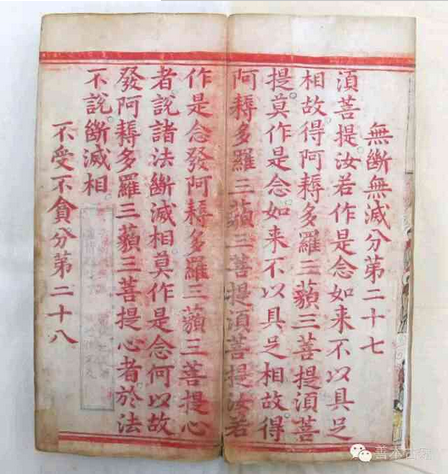 無斷無滅分第二十七
湏菩提汝若作是念如来不以具足
相故得阿耨多羅三藐三菩提湏菩
提莫作是念如来不以具足相故得
阿耨多羅三藐三菩提湏菩提汝若
作是念發阿耨多羅三藐三菩提心
者說諸法斷滅相莫作是念何以故
發阿耨多羅三藐三菩提心者於法
不說斷滅相
不受不貪分第二十八